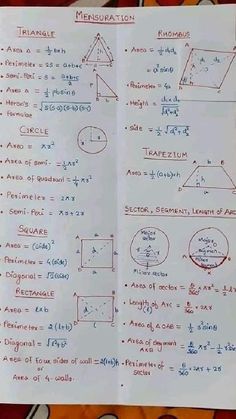 MENSURATION
TRIANGLE
• Area Δ = 1/2 b×h
• Perimeter = 2S = a+b+c
• Semi-Peri = S = a+b+c/2
• Area Δ =
• Heron's Formulae = √S(S-a)(S-b)(S-c)
CIRCLE
• Area = πr²
• Area of semi. = 1/2 πr²
• Area of Quadrant = 1/4 πr²
• Perimeter = 2πr
• Semi-Peri = πr + 2r
SQUARE
• Area = (side)²
• Perimeter = 4(side)
• Diagonal = √2(side)
RECTANGLE
• Area = l×b
• Perimeter = 2(l+b)
• Diagonal = √l²+b²
• Area of four sides of wall = 2(l+b)h
or
Area of 4-walls
RHOMBUS
• Area = 1/2 d₁d₂
• Perimeter = 4a
• Height =
• Side = 1/2 √d₁²+d₂²
TRAPEZIUM
• Area = 1/2 (a+b)×h
SECTOR, SEGMENT, LENGTH of ARC
Major sector
Minor sector
Major
• Area of sector = θ/360 × πr²
• Length of Arc = θ/360 × 2πr
(l)
• Area of ΔOAB = 1/2 r² sinθ
• Area of segment = θ/360 × πr² - 1/2 r²
• Perimeter of sector = θ/360 × 2πr + 2r